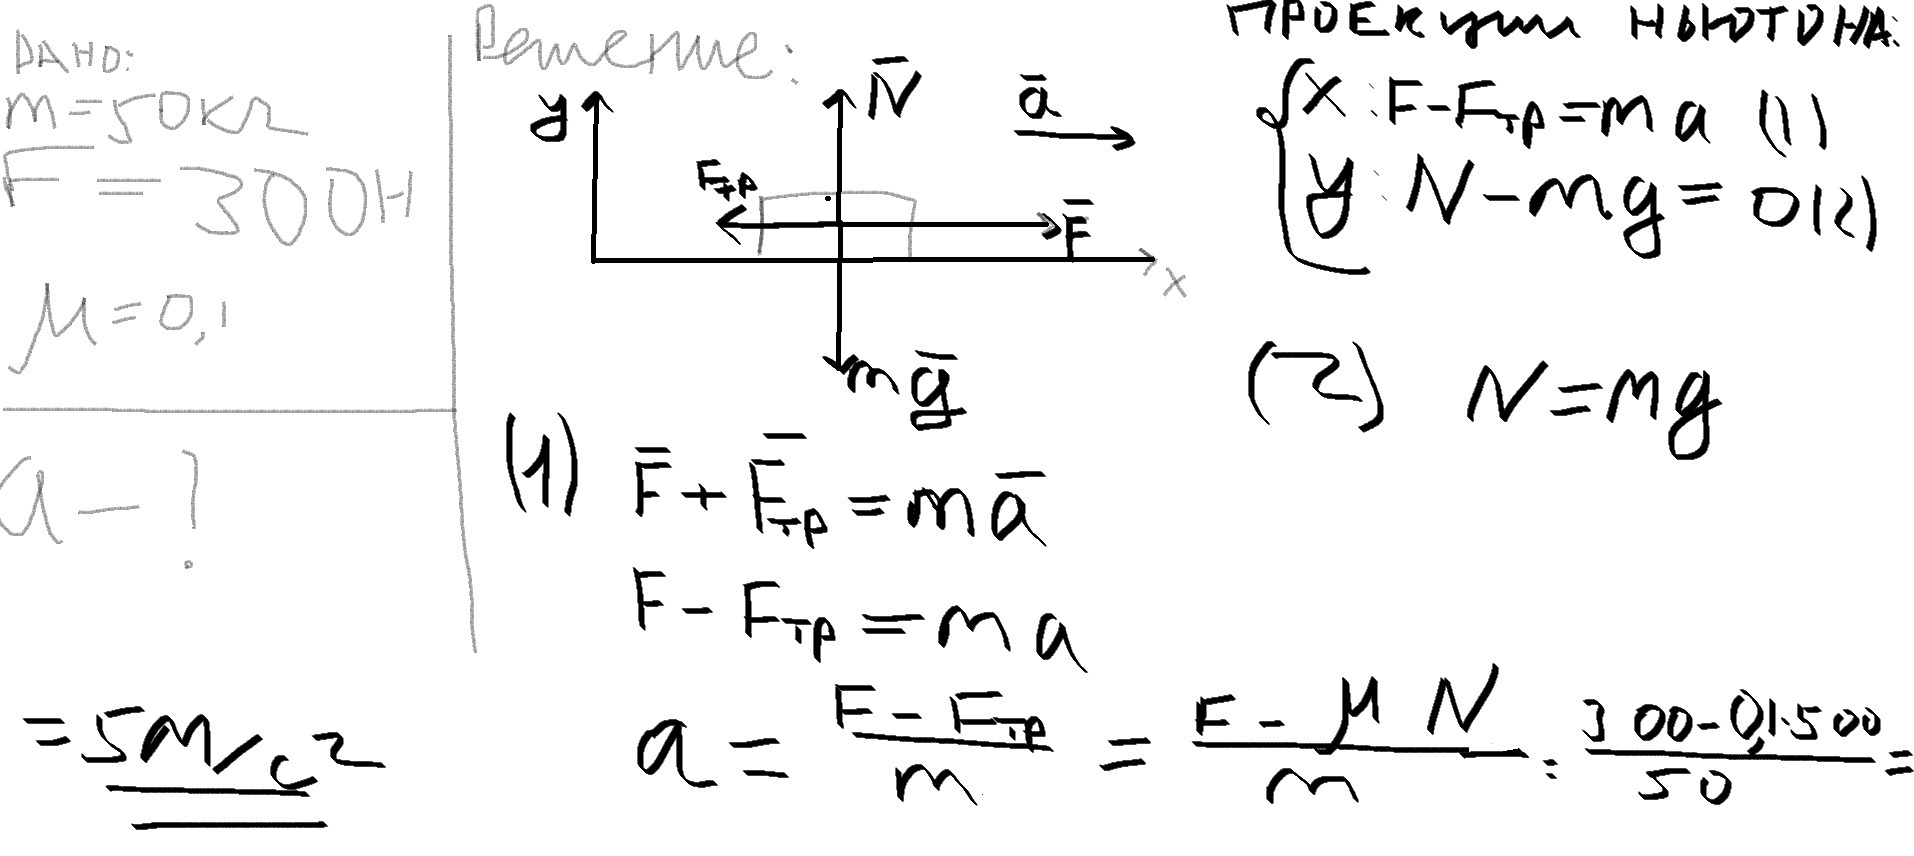 ДАНО:
m=50кг
F=300Н
μ=0,1
a-?
Решение:
y
N̄
ā
Fтр
F̄
x
mḡ
ПРОЕКЦИИ НЬЮТОНА:
x: F-Fтр=ma (1)
y: N-mg=0(2)
(2) N=mg
(1) F̄+F̄тр=mā
F-Fтр=ma
a=(F-Fтр)/m=(F-μN)/m=(300-0,1·500)/50=
=5м/с²